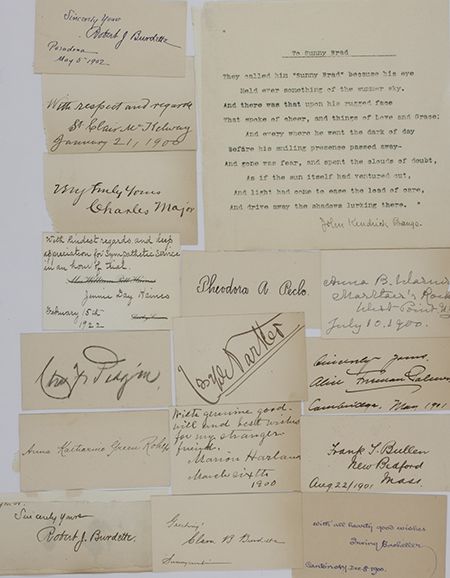 Sincerely Yours
Robert J Burdette
Pasadena
May 5 1902
With respect and regards
St Clair McKelway
January 21, 1900
Very truly yours
Charles Major
With kindest regards and deep
appreciation for sympathetic service
in an hour of trial.
Jennie Day Haines
February 15th
1922
To Sunny Brad
They called him "Sunny Brad" because his eye
Held ever something of the summer sky,
And there was that upon his rugged face
That spoke of cheer, and things of Love and Grace;
And every where he went the dark of day
Before his smiling presence passed away-
And gone was fear, and spent the clouds of doubt,
As if the sun itself had ventured out,
And light had come to ease the load of care,
And drive away the shadows lurking there. "
John Kendrick Bangs.
Theodora A. Peck.
Anna B. Warner
Martlaer's Rock
West Point
July 10. 1900.
Gilbert Parker
Sincerely yours.
Alice Freeman Palmer
Cambridge, May 1901
Anna Katharine Green Rohlfs
With genuine good-
will and best wishes
for my stranger
friend.
Marion Harland
March sixth
1900
Frank T. Bullen
New Bedford
Mass.
Aug 22/1901
Sincerely Yours
Robert J. Burdette.
Greeting:
Clara B Burdette
Sunnycrest
With all hearty good wishes
Irving Bacheller
Dec 8 1900.